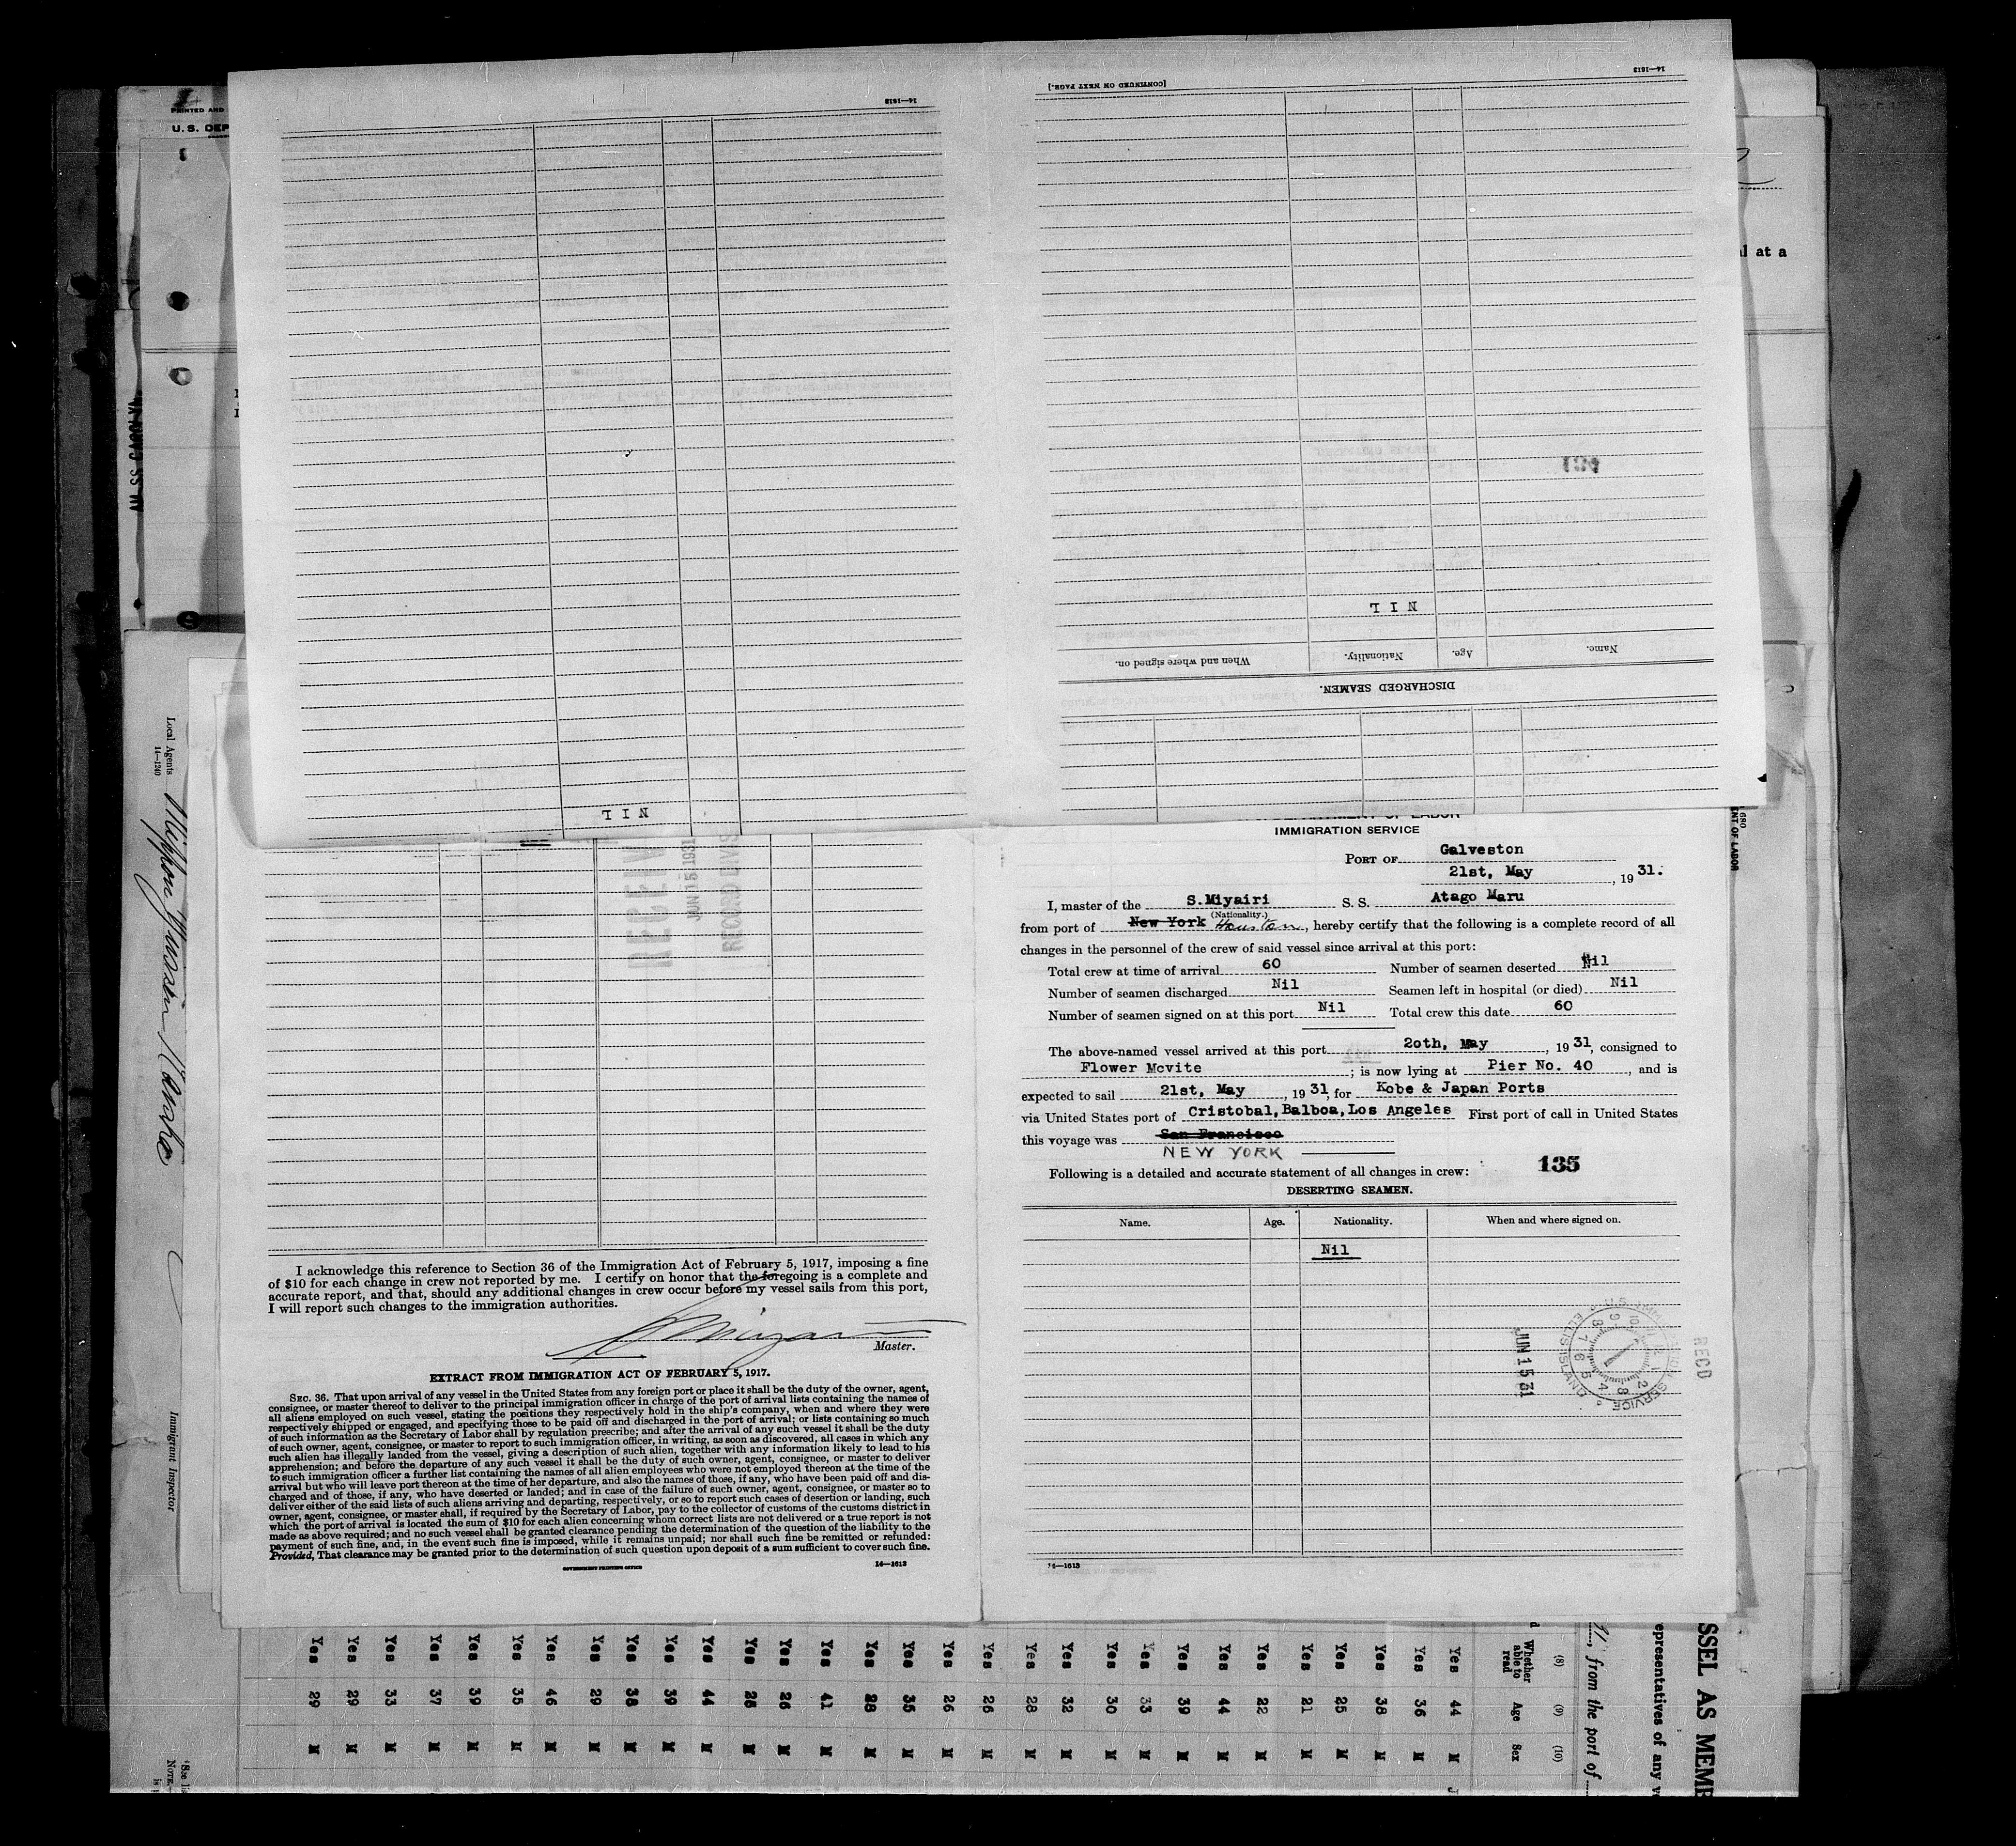 14—1613
[CONTINUED ON NEXT PAGE.]
14—1613
PRINTED AND
U. S. DEP
al at a
134
NIL
Name.
Age.
Nationality.
When and where signed on.
DISCHARGED SEAMEN.
NIL
Local Agents
14—1240
Immigrant Inspector
JUN 15 1931
IMMIGRATION SERVICE
PORT OF Galveston
21st, May, 1931.
I, master of the S.Miyairi S. S. Atago Maru
(Nationality.)
from port of New York Houston, hereby certify that the following is a complete record of all
changes in the personnel of the crew of said vessel since arrival at this port:
Total crew at time of arrival 60 Number of seamen deserted Nil
Number of seamen discharged Nil Seamen left in hospital (or died) Nil
Number of seamen signed on at this port Nil Total crew this date 60
The above-named vessel arrived at this port 2oth, May, 1931, consigned to
Flower Mcvite; is now lying at Pier No. 40, and is
expected to sail 21st, May, 1931, for Kobe & Japan Ports
via United States port of Cristobal, Balboa, Los Angeles First port of call in United States
this voyage was San Francisco
NEW YORK
Following is a detailed and accurate statement of all changes in crew:
135
DESERTING SEAMEN.
Name. Age. Nationality. When and where signed on.
Nil
JUN 15 31
RECD
14—1613
I acknowledge this reference to Section 36 of the Immigration Act of February 5, 1917, imposing a fine
of $10 for each change in crew not reported by me. I certify on honor that the foregoing is a complete and
accurate report, and that, should any additional changes in crew occur before my vessel sails from this port,
I will report such changes to the immigration authorities.
Master.
EXTRACT FROM IMMIGRATION ACT OF FEBRUARY 5, 1917.
SEC. 36. That upon arrival of any vessel in the United States from any foreign port or place it shall be the duty of the owner, agent,
consignee, or master thereof to deliver to the principal immigration officer in charge of the port of arrival lists containing the names of
all aliens employed on such vessel, stating the positions they respectively hold in the ship's company, when and where they were
respectively shipped or engaged, and specifying those to be paid off and discharged in the port of arrival; or lists containing so much
of such information as the Secretary of Labor shall by regulation prescribe; and after the arrival of any such vessel it shall be the duty
of such owner, agent, consignee, or master to report to such immigration officer, in writing, as soon as discovered, all cases in which any
such alien has illegally landed from the vessel, giving a description of such alien, together with any information likely to lead to his
apprehension; and before the departure of any such vessel it shall be the duty of such owner, agent, consignee, or master to deliver
to such immigration officer a further list containing the names of all alien employees who were not employed thereon at the time of the
arrival but who will leave port thereon at the time of her departure, and also the names of those, if any, who have been paid off and dis-
charged and of those, if any, who have deserted or landed; and in case of the failure of such owner, agent, consignee, or master so to
deliver either of the said lists of such aliens arriving and departing, respectively, or so to report such cases of desertion or landing, such
owner, agent, consignee, or master shall, if required by the Secretary of Labor, pay to the collector of customs of the customs district in
which the port of arrival is located the sum of $10 for each alien concerning whom correct lists are not delivered or a true report is not
made as above required; and no such vessel shall be granted clearance pending the determination of the question of the liability to the
payment of such fine, and, in the event such fine is imposed, while it remains unpaid; nor shall such fine be remitted or refunded:
Provided, That clearance may be granted prior to the determination of such question upon deposit of a sum sufficient to cover such fine.
GOVERNMENT PRINTING OFFICE 14—1613
SSEL AS MEMB
epresentatives of any v
, from the port of
(8) (9) (10)
Whether able to read Age Sex
Yes 44 M
Yes 36 M
Yes 38 M
Yes 25 M
Yes 21 M
Yes 22 M
Yes 44 M
Yes 39 M
Yes 33 M
Yes 30 M
Yes 32 M
Yes 28 M
Yes 26 M
Yes 26 M
Yes 35 M
Yes 28 M
Yes 41 M
Yes 26 M
Yes M
Yes 44 M
Yes 39 M
Yes 38 M
Yes 29 M
Yes 46 M
Yes 35 M
Yes 39 M
Yes 37 M
Yes 33 M
Yes 29 M
Yes 29 M